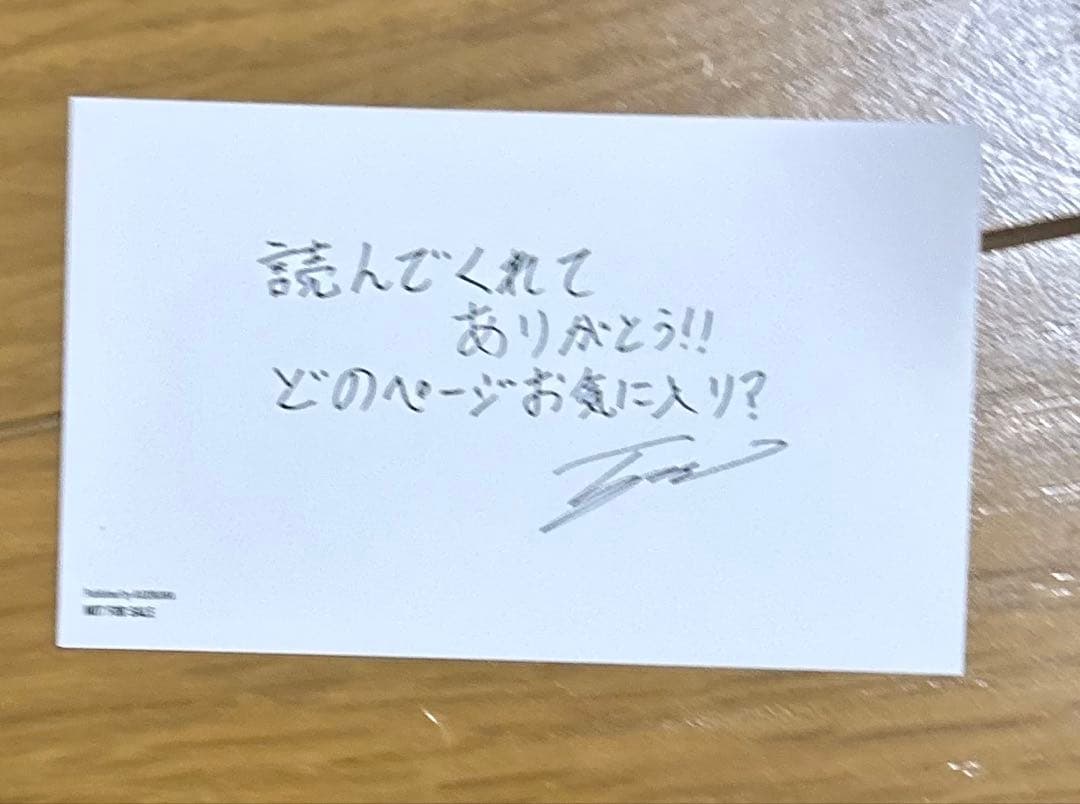 読んでくれて
ありがとう!!
どのページお気に入り?
NOT FOR SALE